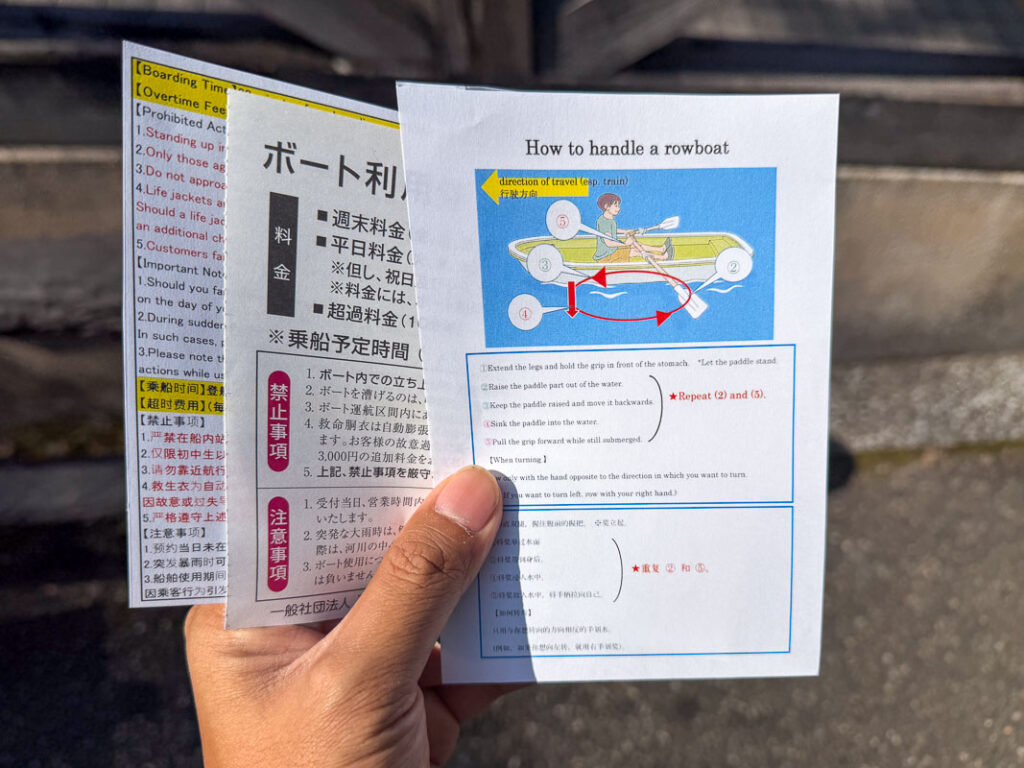 【Boarding Time
【Overtime Fee
【Prohibited Act
1.Standing up in
2.Only those ag
3.Do not approa
4.Life jackets a
Should a life jac
an additional ch
5.Customers fa
【Important Not
1.Should you fa
on the day of y
2.During sudden
In such cases, p
3.Please note t
actions while us
【乘船时间】登船
【超时费用】(每
【禁止事项】
1.严禁在船内站
2.仅限初中生以
3.请勿靠近航行
4.救生衣为自动
因故意或过失导
5.严格遵守上述
【注意事项】
1.预约当日未在
2.突发暴雨时可
3.船舶使用期间
因乘客行为引发
ボート利用
料金
■週末料金(
■平日料金(
※但し、祝日
※料金には、
■超過料金(1
※乗船予定時間(
禁止事項
1. ボート内での立ち上
2. ボートを漕げるのは、
3. ボート運航区間内にあ
4. 救命胴衣は自動膨張
ます。お客様の故意過
3,000円の追加料金を
5. 上記、禁止事項を厳守
注意事項
1. 受付当日、営業時間内
いたします。
2. 突発な大雨時は、
際は、河川の中
3. ボート使用につ
は負いません
一般社団法人
How to handle a rowboat
direction of travel (esp. train)
行驶方向
⑤
③
②
④
①Extend the legs and hold the grip in front of the stomach. *Let the paddle stand.
②Raise the paddle part out of the water.
③Keep the paddle raised and move it backwards.
④Sink the paddle into the water.
⑤Pull the grip forward while still submerged.
★Repeat (2) and (5).
【When turning】
only with the hand opposite to the direction in which you want to turn.
If you want to turn left, row with your right hand.)
握住腹前的握把，
②将桨举过水面
④将桨浸入水中。
⑤将桨浸入水中，将手柄拉向自己。
★重复 ② 和 ⑤。
【如何转弯】
只用与你想转向的方向相反的手划水。
(例如，如果你想向左转，就用右手划桨)